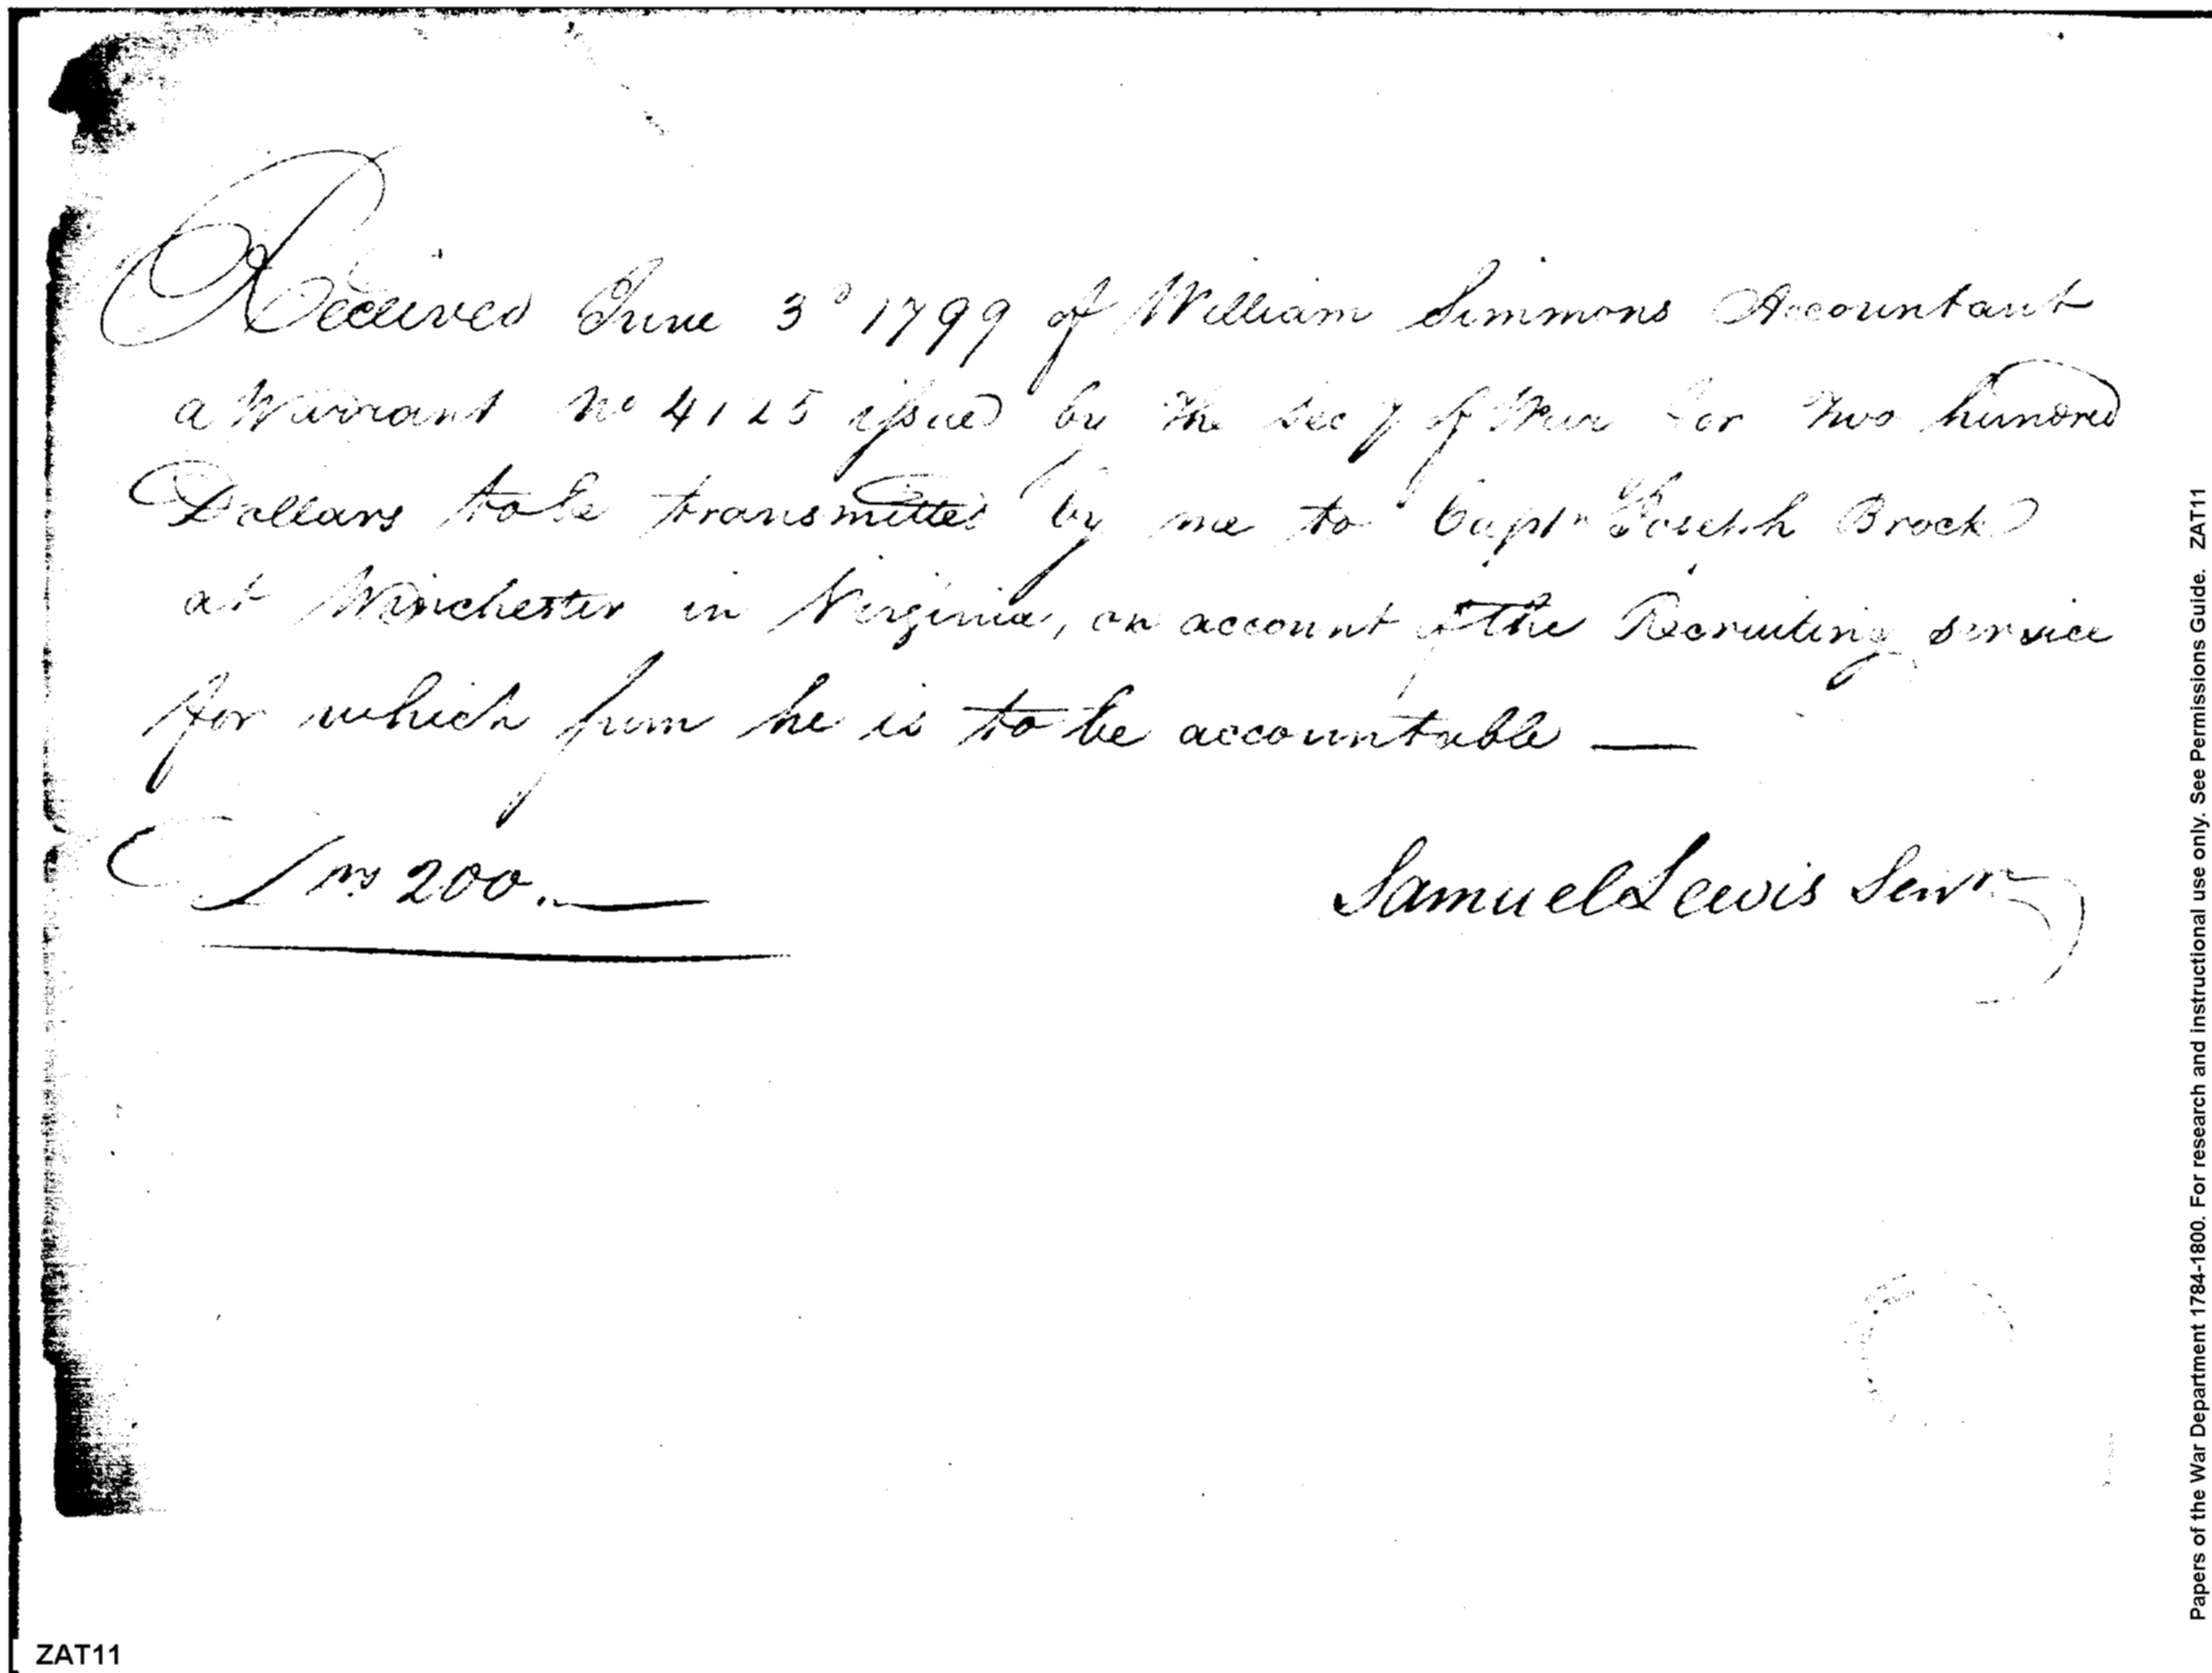 Received June 3d 1799 of William Simmons Accountant
a Warrant No 4125 issued by the Secy of War for two hundred
Dollars to be transmitted by me to Captn Joseph Brock
at Winchester in Virginia, on account of the Recruiting service
for which sum he is to be accountable —
Drs 200.—
Samuel Lewis Senr
Papers of the War Department 1784-1800. For research and instructional use only. See Permissions Guide. ZAT11
ZAT11